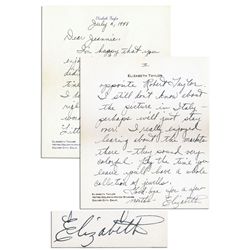 Elizabeth Taylor
July 6, 1948
Dear Jeannie:
I'm happy that you
ELIZABETH TAYLOR
opposite Robert Taylor.
I still don't know about
the picture in Italy -
perhaps will just stay
over! I really enjoyed
hearing about the markets
there - they sound very
colorful. By the time you
leave you'll have a whole
collection of jewelry.
Good-bye for a few
Elizabeth
ELIZABETH TAYLOR
METRO-GOLDWYN-MAYER STUDIOS
CULVER CITY, CALIF.
ELIZABETH TAYLOR
METRO-GOLDWYN-MAYER STUDIOS
CULVER CITY, CALIF.
Elizabeth